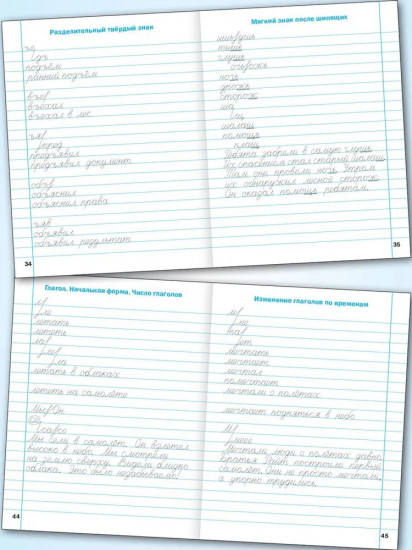 Разделительный твёрдый знак
ъд
подъём
ранний подъём
въе
въехал
въехал в лес
предъявил
предъявил документ
объ
объяснил
объяснил права
объявил
объявил результат
34
Мягкий знак после шипящих
тишь
глушь
ночь
дрожь
сторож
ша
шалаш
помощь
плащ
Ребята забрели в самую глушь
Их спасением стал старый шалаш
Там они провели ночь. Утром
их обнаружил лесной сторож
Он оказал помощь ребятам.
35
Глагол. Начальная форма. Число глаголов
ле
летать
лететь
летать в облаках
лететь на самолёте
Мы сели в самолёт. Он взлетел
высоко в небо. Мы смотрели
на землю сверху. Видели близко
облака. Это было незабываемо!
44
Изменение глаголов по временам
мечтать
мечтает
мечтал
помечтает
мечтали о полётах
мечтает подняться в небо
Мечтали люди о полётах давно
Братья Райт построили первый
самолёт. Они не просто мечтали,
а упорно трудились.
45